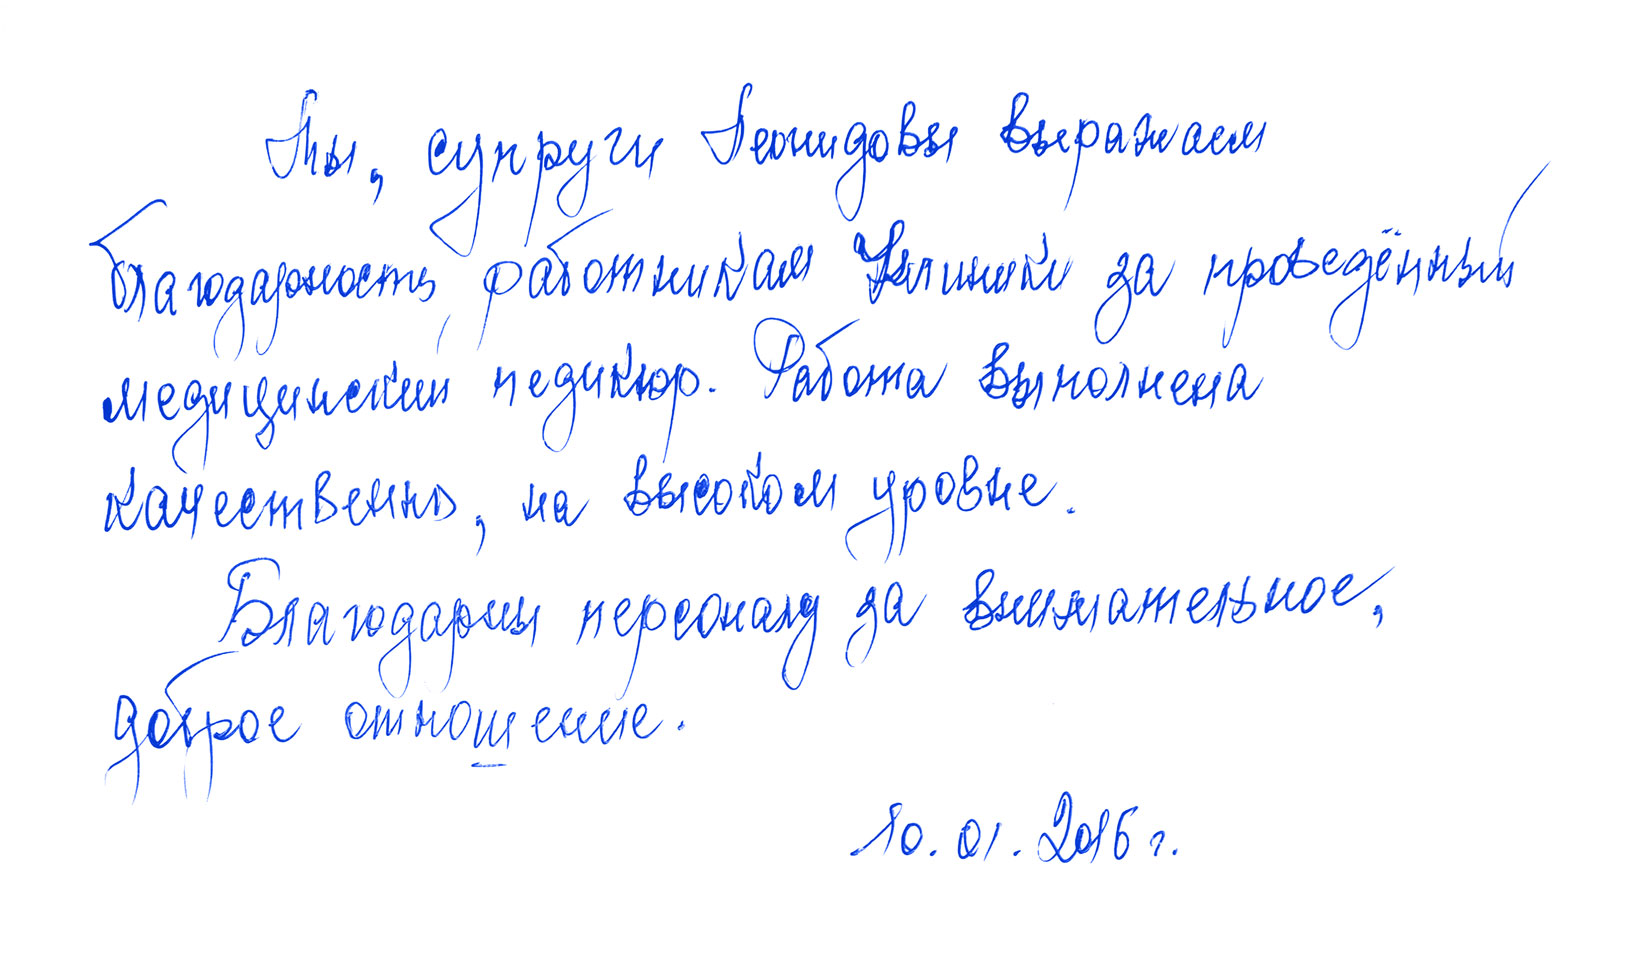 Мы, супруги Леонидовы выражаем
благодарность работникам Клиники за проведённый
медицинский педикюр. Работа выполнена
качественно, на высоком уровне.
Благодарны персоналу за внимательное,
доброе отношение.
10.01.2016 г.